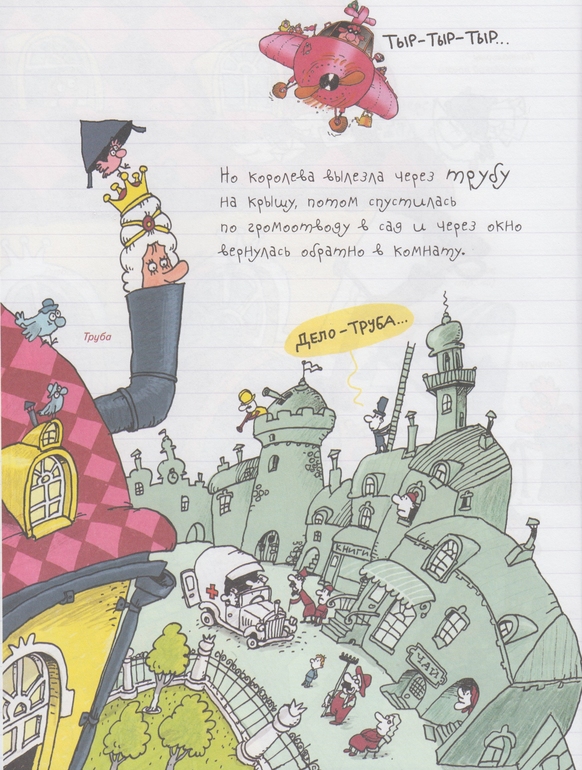 ТЫР-ТЫР-ТЫР...
Но королева вылезла через трубу
на крышу, потом спустилась
по громоотводу в сад и через окно
вернулась обратно в комнату.
Труба
ДЕЛО-ТРУБА...
КНИГИ
ЧАЙ